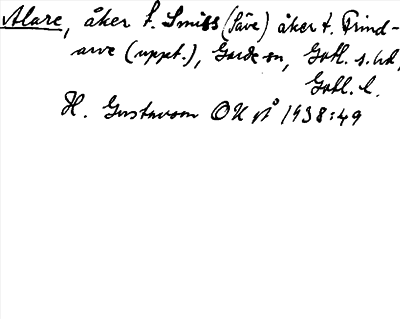 Alare, åker t. Smiss (Säve) åker t. Frind-
arve (uppt.), Garde sn, Gotl. s. hd,
Gotl. l.
H. Gustavson OH på 1938:49